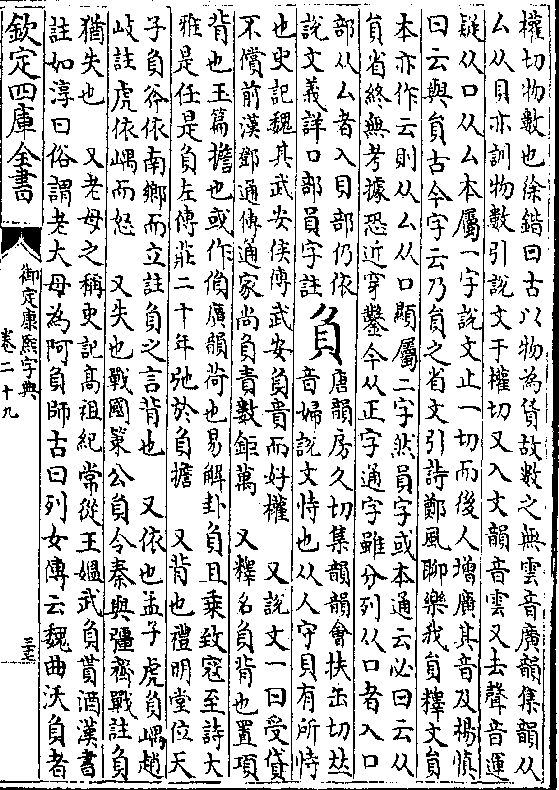 權切物數也徐鍇曰古以物為貨故數之無雲音廣韻集韻从
厶从貝亦訓物數引說文于權切又入文韻音雲又去聲音運
疑从口从厶本屬一字說文止一切而後人增廣其音及楊慎
曰云與員古今字云乃員之省文引詩鄭風聊樂我員釋文員
本亦作云則从厶从口顯屬二字然員字或本通云必曰云从
員省終無考據恐近穿鑿今从正字通字雖分列从口者入口
部从厶者入貝部仍依
說文義詳口部員字註
負
唐韻房久切集韻韻會扶缶切𠀤
音婦說文恃也从人守貝有所恃
也史記魏其武安侯傳武安負貴而好權　又說文一曰受貸
不償前漢鄧通傳通家尚負責數鉅萬　又釋名負背也置項
背也玉篇擔也或作偩廣韻荷也易解卦負且乘致寇至詩大
雅是任是負左傳莊二十年弛於負擔　又背也禮明堂位天
子負斧依南鄉而立註負之言背也　又依也孟子虎負嵎趙
岐註虎依嵎而怒　又失也戰國策公負令秦與彊齊戰註負
猶失也　又老母之稱史記高祖紀常從王媪武負貰酒漢書
註如淳曰俗謂老大母為阿負師古曰列女傳云魏曲沃負者
欽定四庫全書
御定康熙字典
卷二十九
三十三